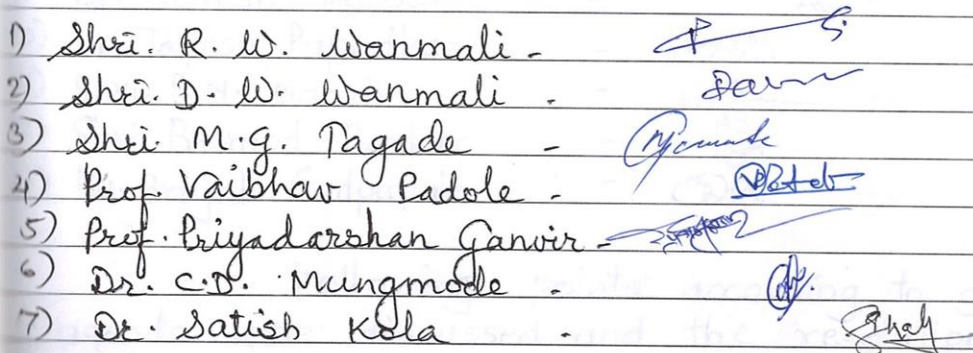 1) Shri. R. W. Wanmali -
2) Shri. D. W. Wanmali -
3) Shri. M.G. Tagade -
4) Prof. Vaibhav Padole -
5) Prof. Priyadarshan Ganvir -
6) Dr. C.D. Mungmode -
7) Dr. Satish Kola -